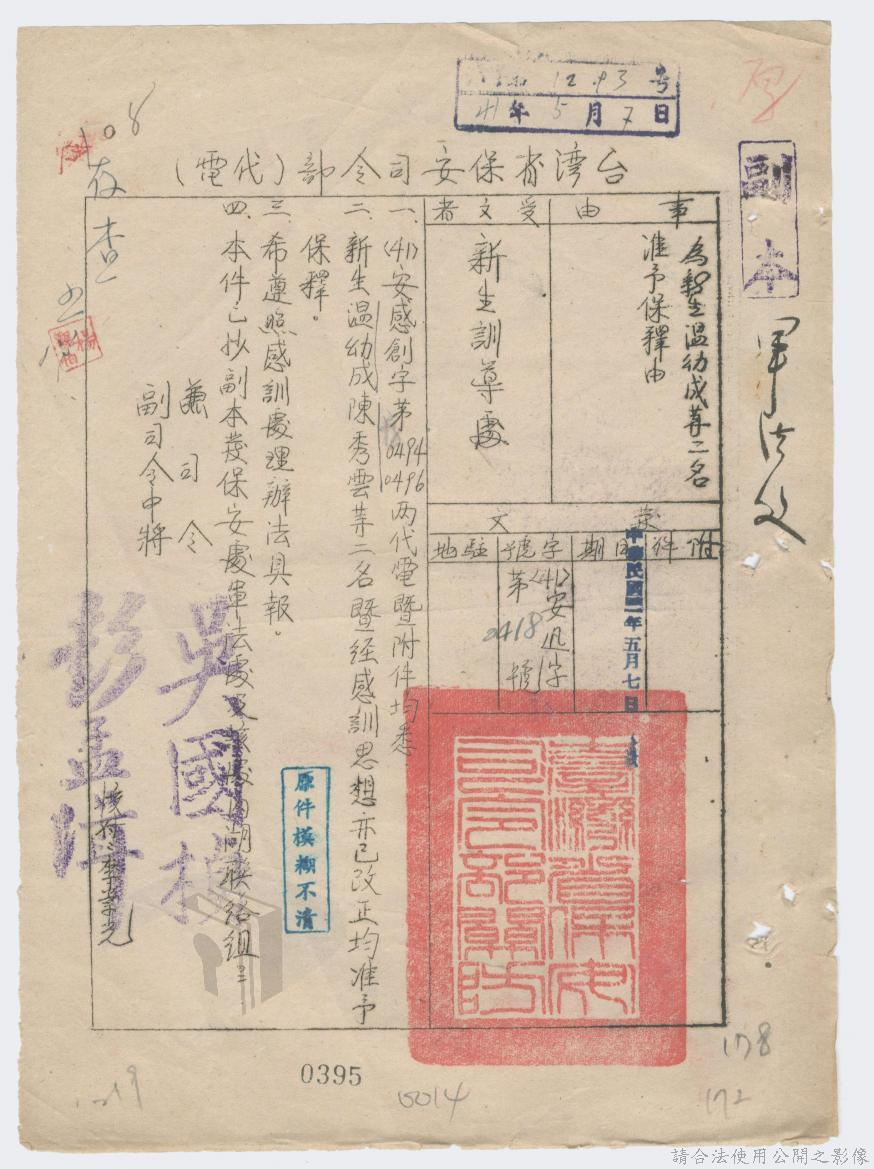 12.93號
41年5月7日
副本
軍法處
台湾省保安司令部(代電)
事由
為新生溫幼成等二名
准予保釋由
受文者
新生訓導處
發文
附件
日期
中華民國四一年五月七日
字號
(41)安迅字
第2418號
駐地
一、(41)安感創字第0494 0496两代電暨附件均悉
二、新生溫幼成陳秀雲等二名暨经感訓思想亦已改正均准予
保釋。
三、希遵照感訓處理辦法具報。
四、本件已抄副本發保安處軍法處及該處內湖聯络組
兼司令
吳國楨
副司令中將
彭孟緝
存查
108
臺灣省保安司令部關防
原件模糊不清
0395
0014
178
172
請合法使用公開之影像